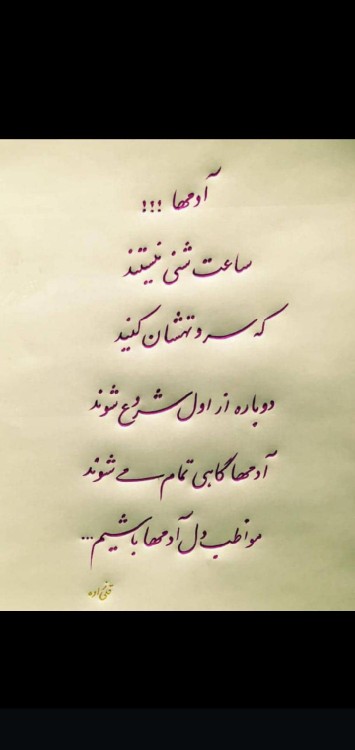 آدمها !!!
ساعت شنی نیستند
که سر و تهشان کنید
دوباره از اول شروع شوند
آدمها گاهی تمام می شوند
مواظب دل آدمها باشیم...